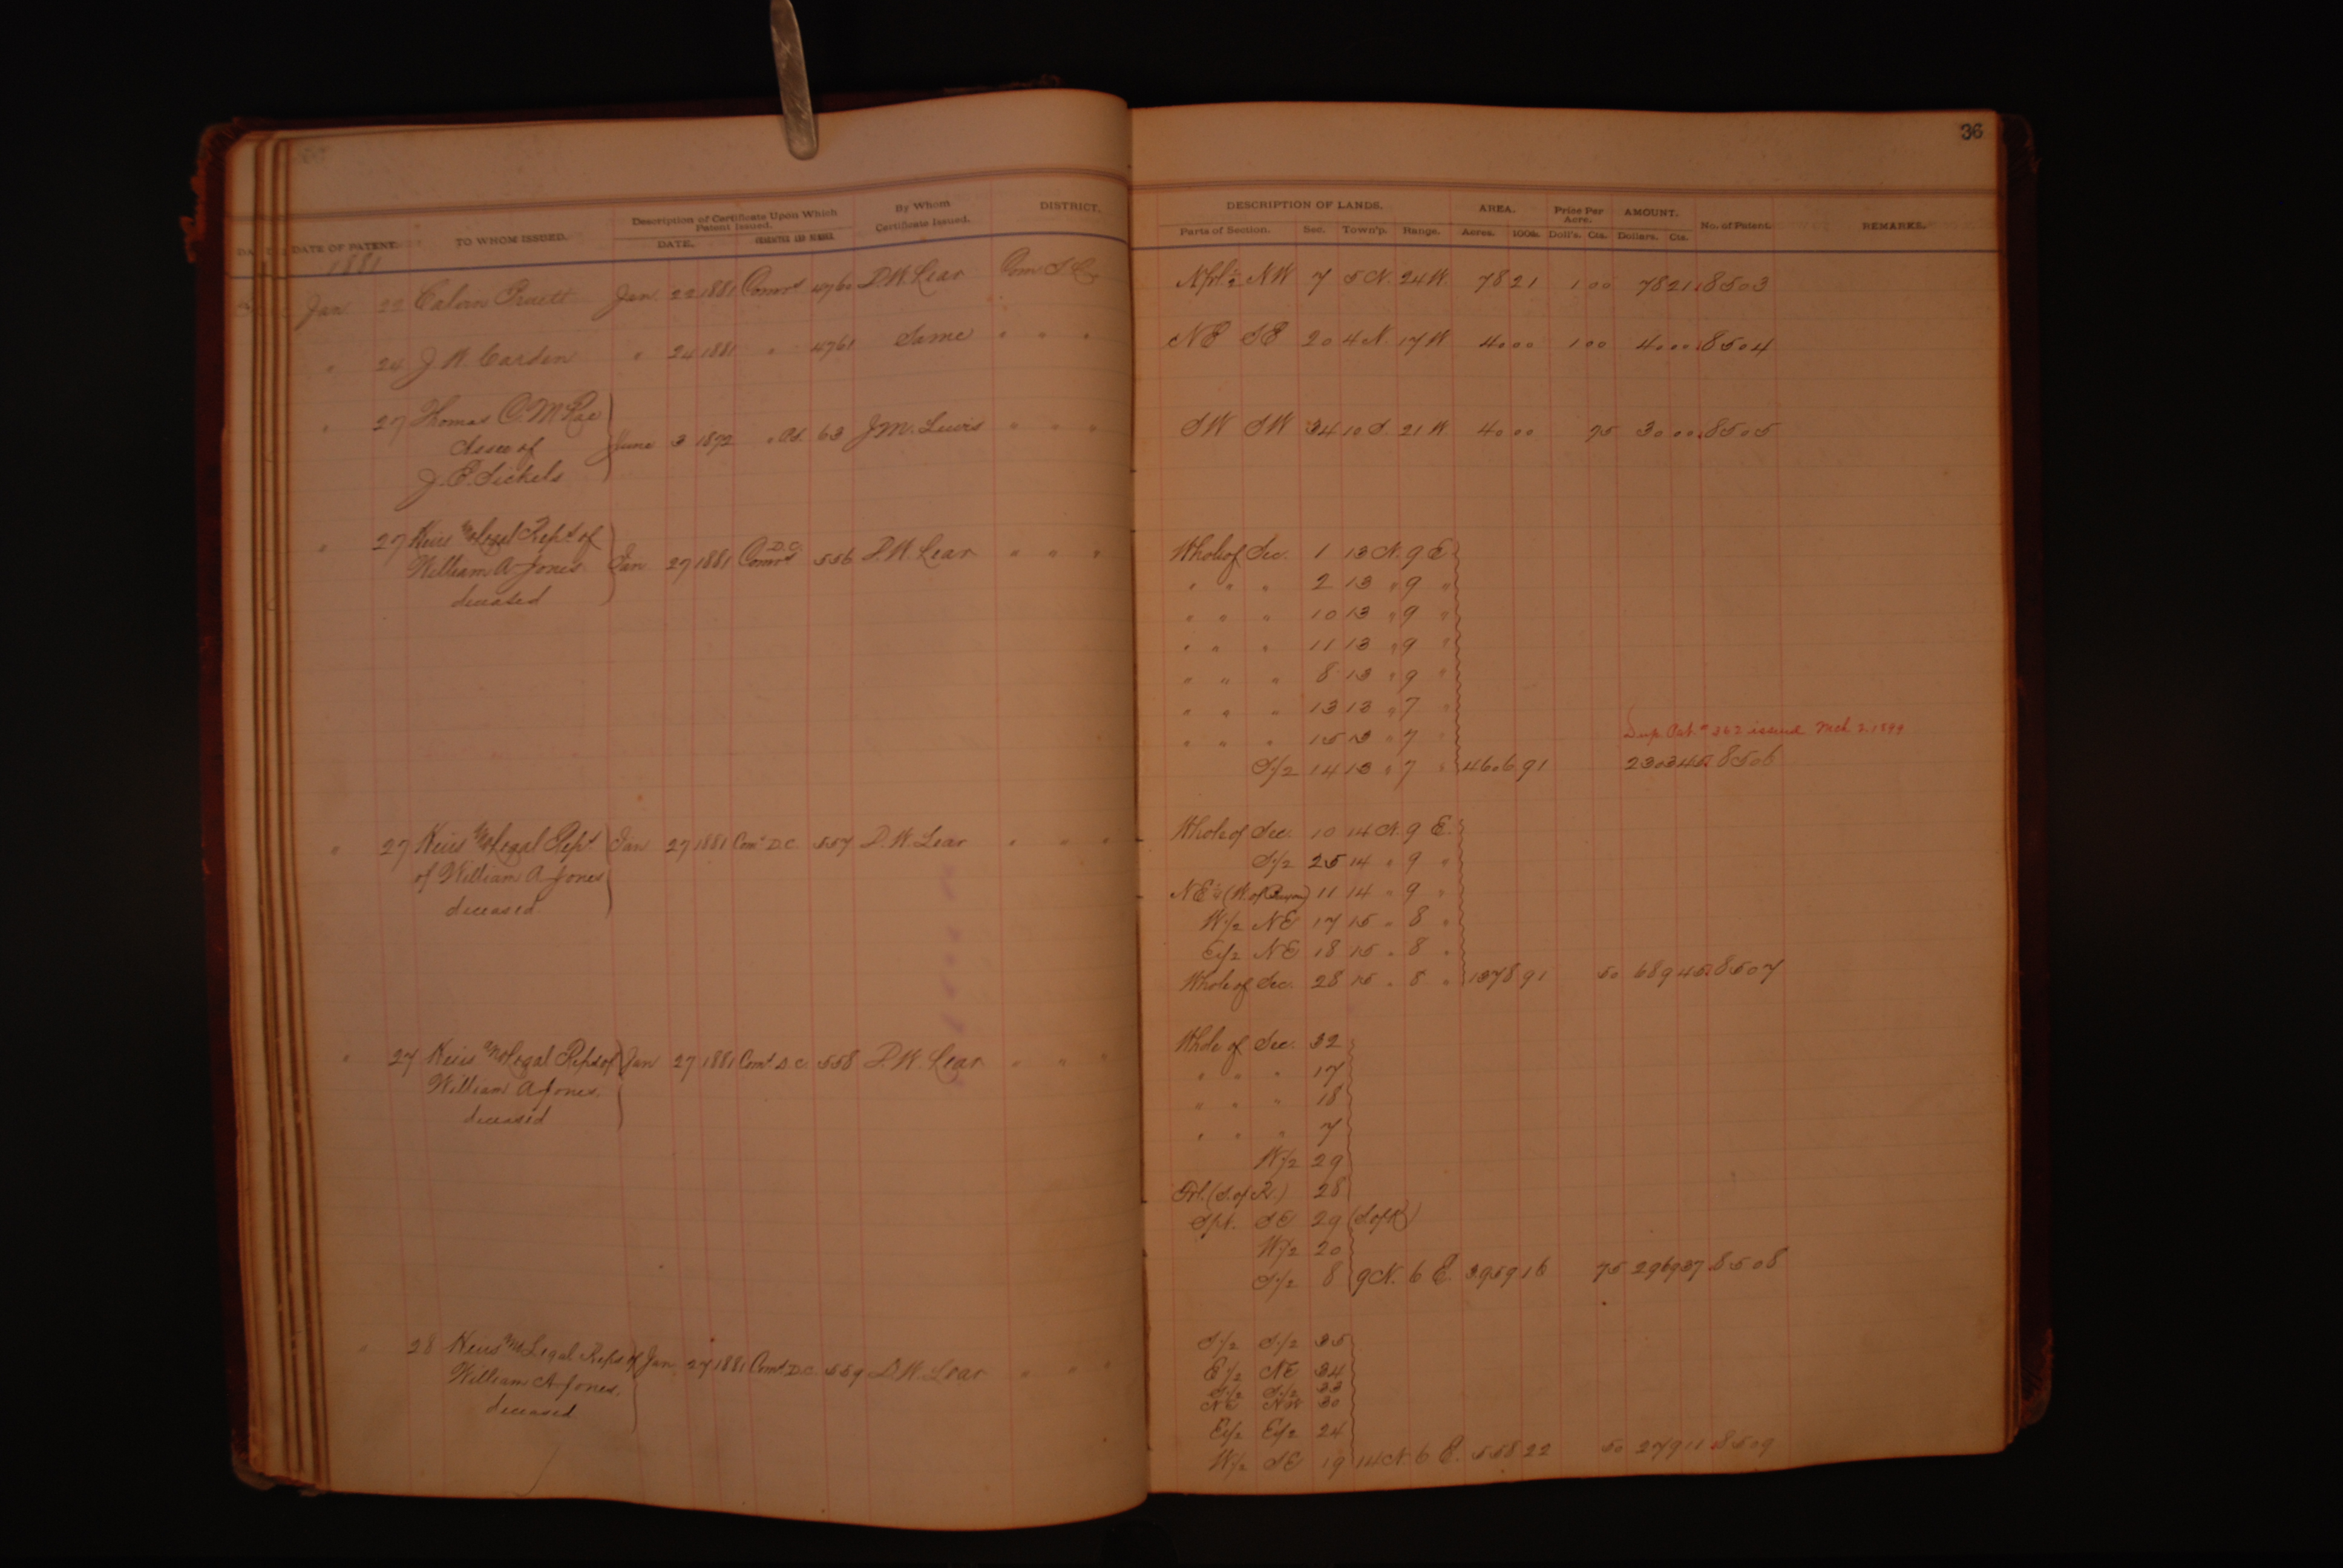 36
DATE OF PATENT.
TO WHOM ISSUED.
Description of Certificate Upon Which Patent Issued.
DATE.
CHARACTER AND NUMBER
By Whom Certificate Issued.
DISTRICT.
DESCRIPTION OF LANDS.
Parts of Section. Sec. Town'p. Range.
AREA.
Acres. 100s.
Price Per Acre.
Doll's. Cts.
AMOUNT.
Dollars. Cts.
No. of Patent.
REMARKS.
1881
Jan 22 Calvin Jan 22 1881 4760 D.W. Lear Com S. L. Nfrl ½ NW 7 5 N. 24 W. 78 21 1 00 78 21 8503
" 24 J. W. Carden " 24 1881 " 4761 Same " " " NE SE 20 4 N. 17 W 40 00 1 00 40 00 8504
" 27 Thomas C. McRae June 3 1872 " 63 J.M. Lewis " " " SW SW 34 10 S. 21 W. 40 00 75 30 00 8505
Assee of
J. E. Sickels
" 27 Heirs and Legal Reps of Jan 27 1881 D.C. 556 D.W. Lear " " " Whole of Sec. 1 13 N. 9 E
William A Jones
deceased
" " " 2 13 " 9 "
" " " 10 13 " 9 "
" " " 11 13 " 9 "
" " " 8 13 " 9 "
" " " 13 13 " 7 "
" " " 15 13 " 7 "
Dup. Pat. # 362 issued Mch 2. 1899
S/2 14 13 " 7 " 4606 91 2303 45 8506
" 27 Heirs and Legal Rept. Jan 27 1881 Com' D.C. 557 D.W. Lear " " " Whole of Sec. 10 14 N. 9 E.
of William A Jones
deceased
S/2 25 14 " 9 "
NE ¼ (W. of Bayou) 11 14 " 9 "
W/2 NE 17 15 " 8 "
E/2 NE 18 15 " 8 "
Whole of Sec. 28 15 " 8 " 1378 91 50 689 45 8507
" 27 Heirs and Legal Reps of Jan 27 1881 Com' D.C. 558 D.W. Lear " " " Whole of Sec. 32
William A Jones,
deceased
" " " 17
" " " 18
" " " 7
W/2 29
Frl. (S. of R.) 28
Spt. SE 29 (S of R)
W/2 20
S/2 8 9 N. 6 E. 3959 16 75 2969 37 8508
" 28 Heirs and Legal Reps of Jan 27 1881 Com' D.C. 559 D.W. Lear " " " S/2 S/2 35
William A Jones,
deceased
E/2 NE 34
S/2 S/2 33
NE NW 30
E/2 E/2 24
W/2 SE 19 14 N. 6 E. 558 22 50 279 11 8509